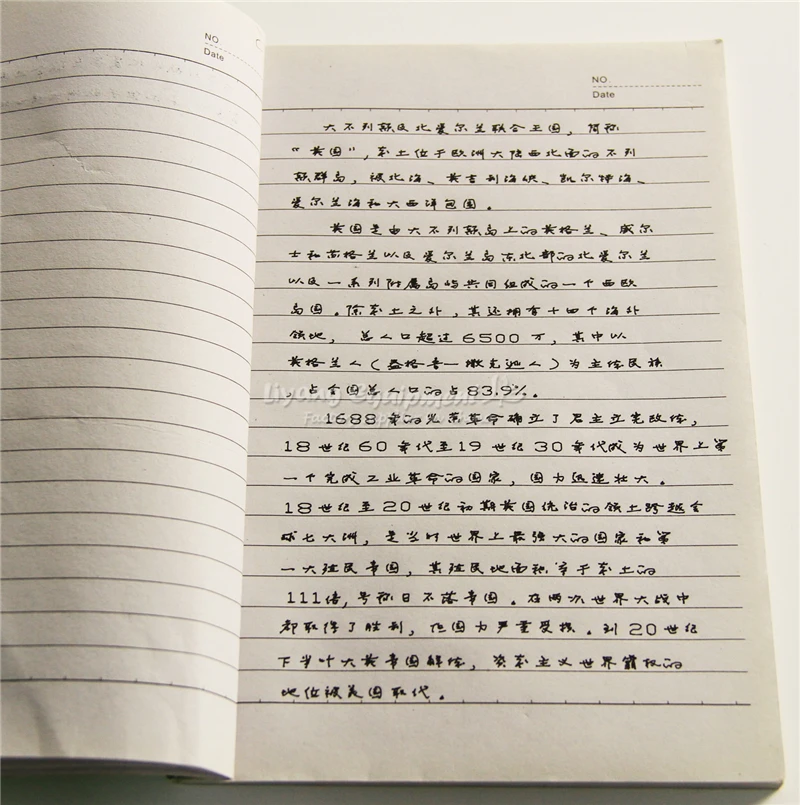 NO
Date
NO
Date
大不列颠及北爱尔兰联合王国，简称
“英国”，本土位于欧洲大陆西北面的不列
颠群岛，被北海、英吉利海峡、凯尔特海、
爱尔兰海和大西洋包围。
英国是由大不列颠岛上的英格兰、威尔
士和苏格兰以及爱尔兰岛东北部的北爱尔兰
以及一系列附属岛屿共同组成的一个西欧
岛国。除本土之外，其还拥有十四个海外
领地，总人口超过6500万，其中以
英格兰人（盎格鲁一撒克逊人）为主体民族
，占全国总人口的占83.9%。
Liyang Equipment
1688年的光荣革命确立了君主立宪政体，
18世纪60年代至19世纪30年代成为世界上第
一个完成工业革命的国家，国力迅速壮大。
18世纪至20世纪初期英国统治的领土跨越全
球七大洲，是当时世界上最强大的国家和第
一大殖民帝国，其殖民地面积等于本土的
111倍，号称日不落帝国。在两次世界大战中
都取得了胜利，但国力严重受损。到20世纪
下半叶大英帝国解体，资本主义世界霸权的
地位被美国取代。